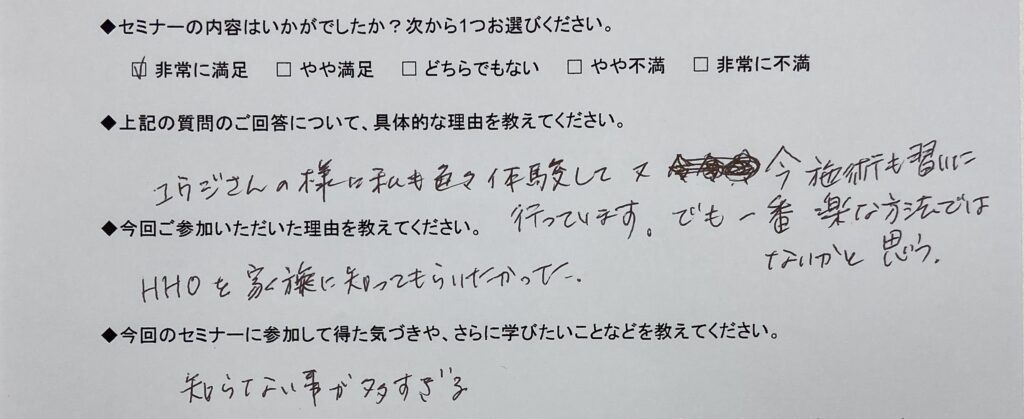 ◆セミナーの内容はいかがでしたか？次から1つお選びください。
☑ 非常に満足 □ やや満足 □ どちらでもない □ やや不満 □ 非常に不満
◆上記の質問のご回答について、具体的な理由を教えてください。
ユウジさんの様に私も色々体験して又 今施術も習いに
行っています。でも一番楽な方法では
ないかと思う。
◆今回ご参加いただいた理由を教えてください。
HHOを家族に知ってもらいたかった。
◆今回のセミナーに参加して得た気づきや、さらに学びたいことなどを教えてください。
知らない事が多すぎる